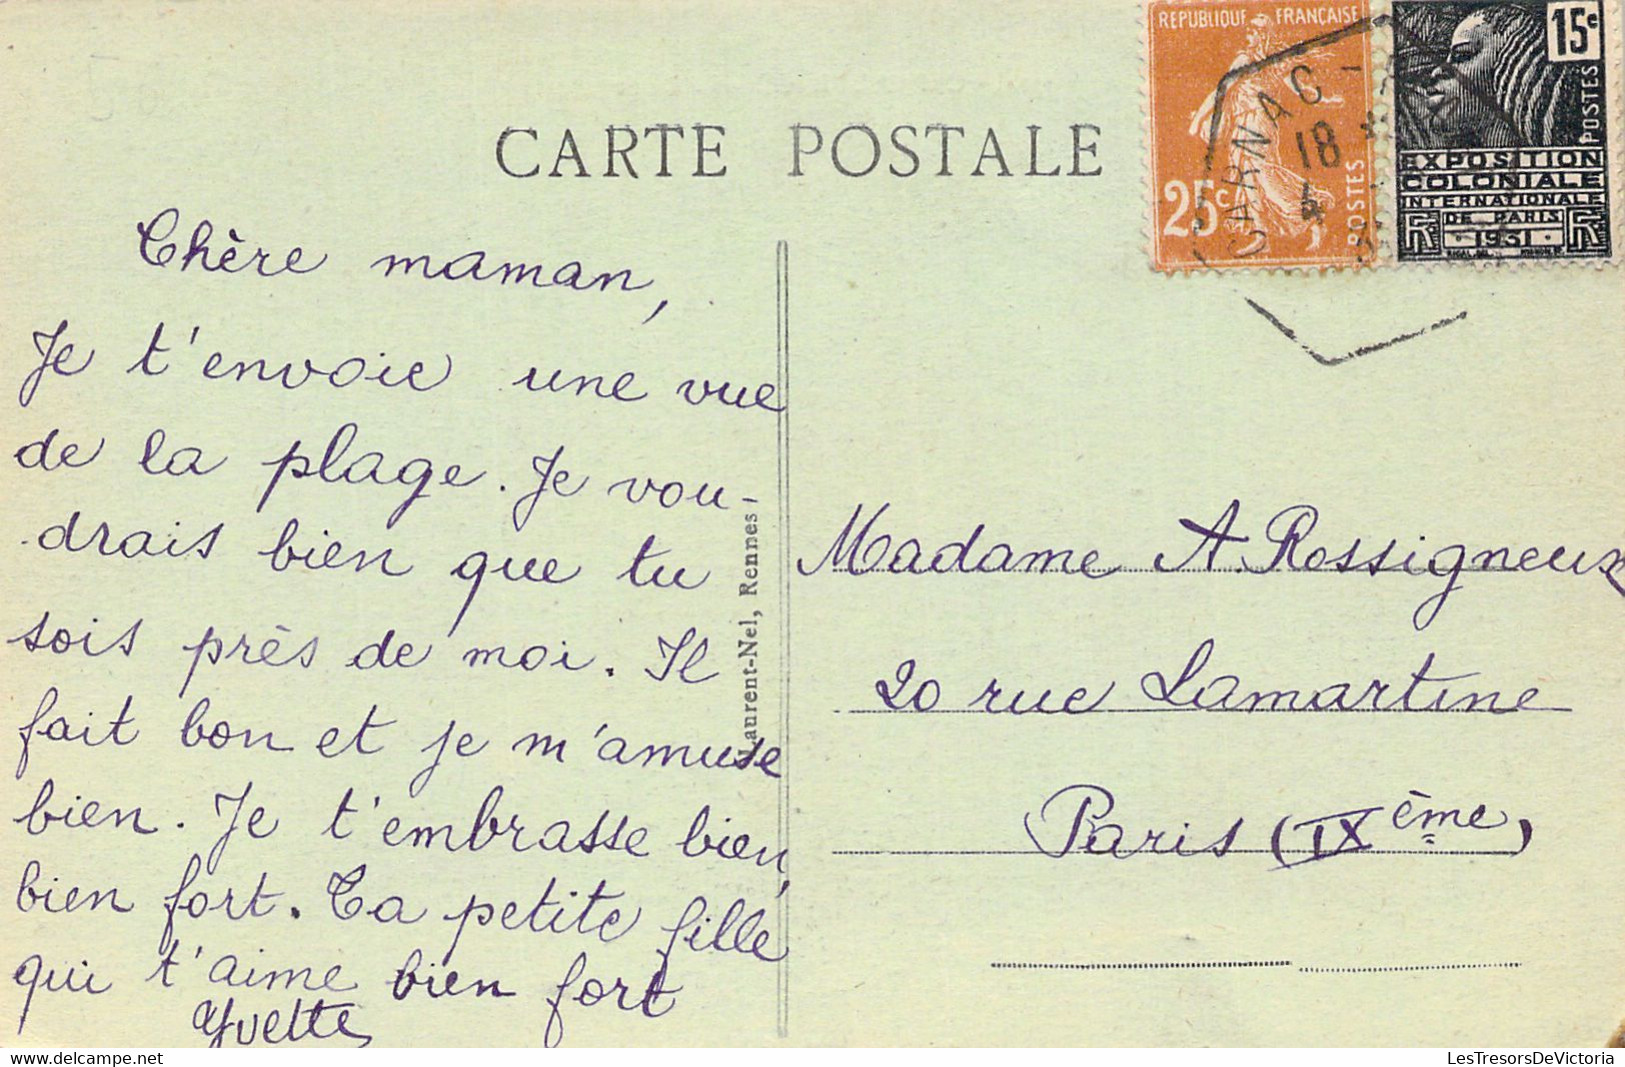 CARTE POSTALE
REPUBLIQUE FRANÇAISE
25c
POSTES
CARNAC -
18
4
15c
POSTES
EXPOSITION
COLONIALE
INTERNATIONALE
DE PARIS
1931
Chère maman,
Je t'envoie une vue
de la plage. Je vou-
drais bien que tu
sois près de moi. Il
fait bon et je m'amuse
bien. Je t'embrasse bien,
bien fort. Ta petite fille
qui t'aime bien fort
Yvette
Laurent-Nel, Rennes
Madame A. Rossigneux
20 rue Lamartine
Paris (IXème)
delcampe.net
LesTresorsDeVictoria